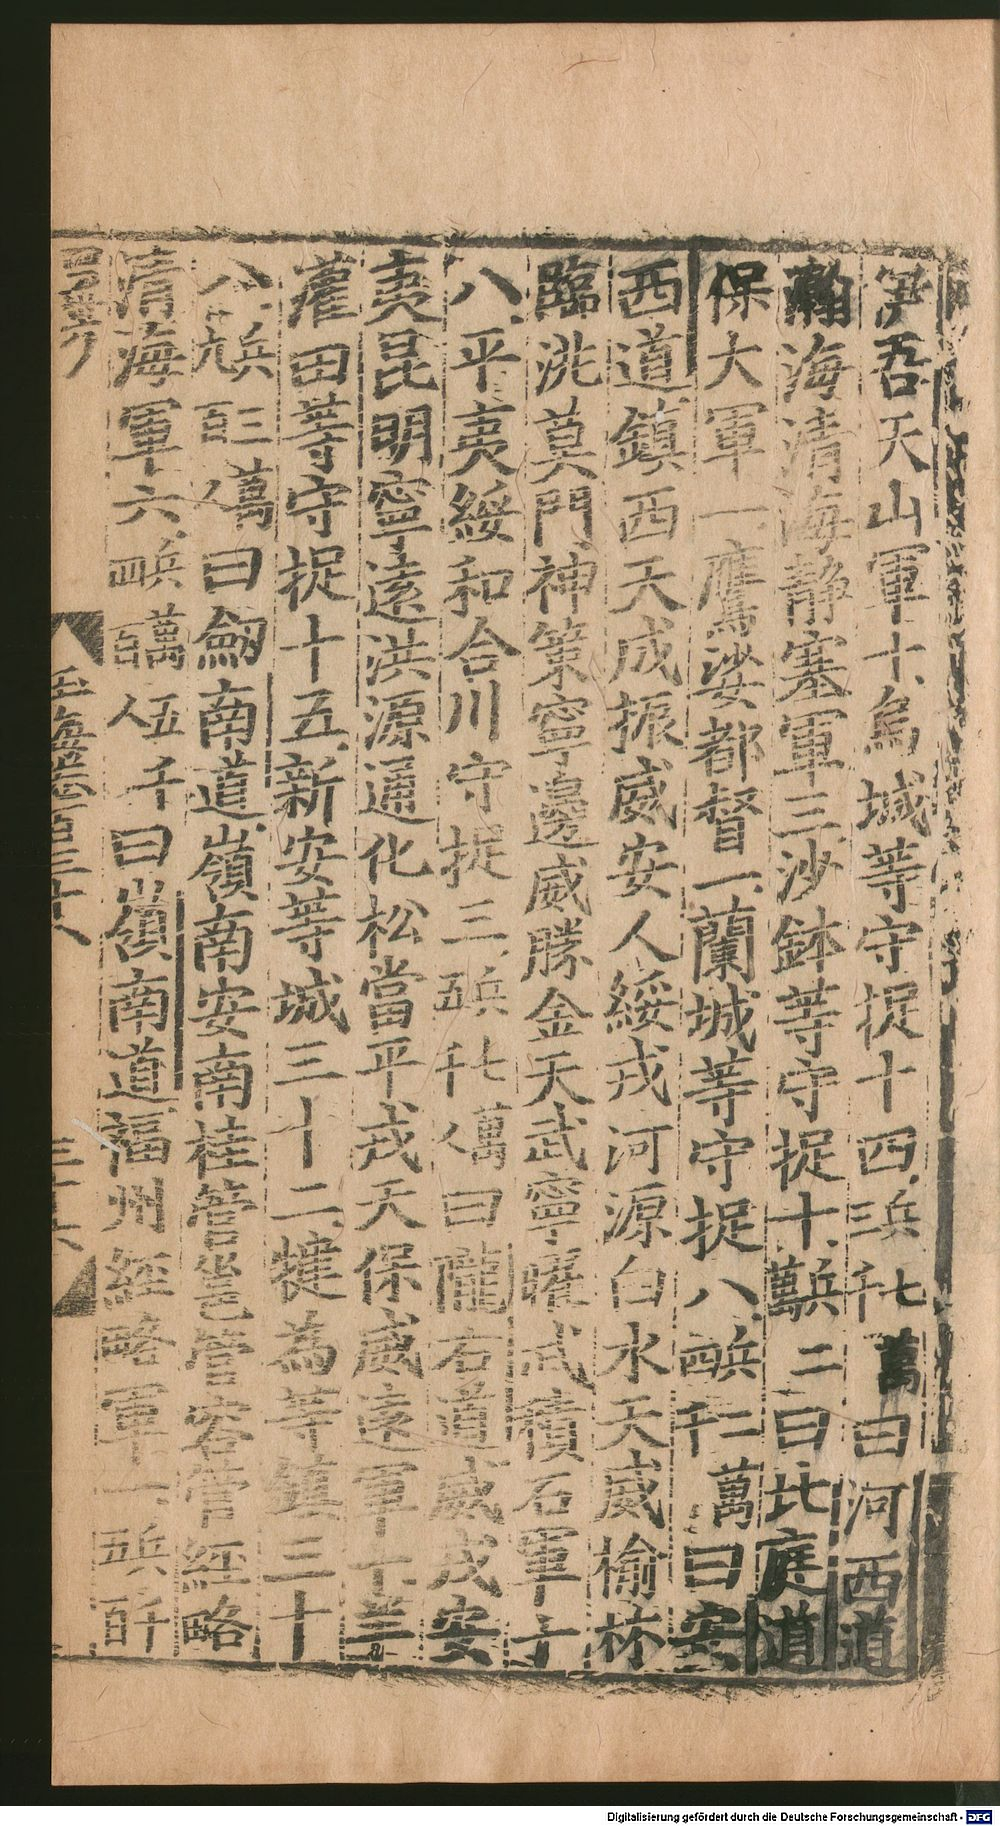 伊吾天山軍十烏城等守捉十四兵七千三萬曰河西道
瀚海清海静塞軍三沙鉢等守捉十兵二萬曰北庭道
保大軍一鷹娑都督一蘭城等守捉八兵二萬四千曰安
西道鎮西天成振威安人綏戎河源白水天威榆林
臨洮莫門神策寧邊威勝金天武寧曜武積石軍十
八平夷綏和合川守捉三兵七萬五千人曰隴右道威戎安
夷昆明寧遠洪源通化松當平戎天保威遠軍十三
灌田等守捉十五新安等城三十二揵為等鎮三十
八兵三萬九百人曰劒南道嶺南安南桂管邕管容管經略
清海軍六兵萬五千四百人曰嶺南道福州經略軍一兵千五百
玉海卷一百三十八 三十六
Digitalisierung gefördert durch die Deutsche Forschungsgemeinschaft - DFG